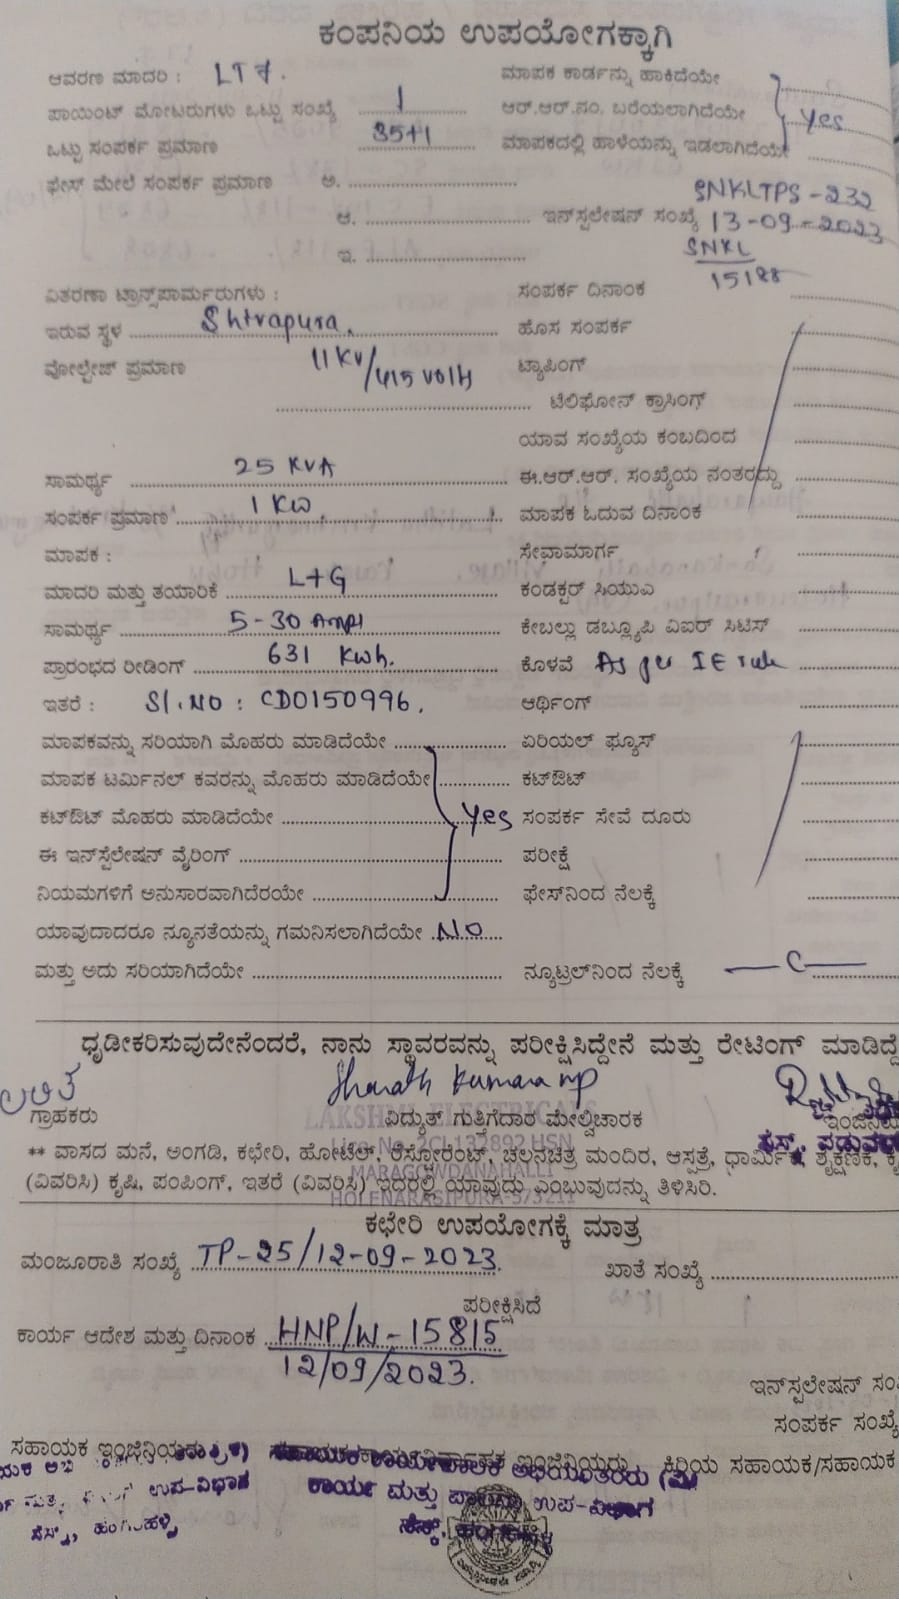 ಕಂಪನಿಯ ಉಪಯೋಗಕ್ಕಾಗಿ
ಆವರಣ ಮಾದರಿ : LT 7. ಮಾಪಕ ಕಾರ್ಡನ್ನು ಹಾಕಿದೆಯೇ
ಪಾಯಿಂಟ್ ಮೋಟರುಗಳು ಒಟ್ಟು ಸಂಖ್ಯೆ 1 ಆರ್.ಆರ್.ನಂ. ಬರೆಯಲಾಗಿದೆಯೇ Yes
ಒಟ್ಟು ಸಂಪರ್ಕ ಪ್ರಮಾಣ 35+1 ಮಾಪಕದಲ್ಲಿ ಹಾಳೆಯನ್ನು ಇಡಲಾಗಿದೆಯೇ
ಫೇಸ್ ಮೇಲೆ ಸಂಪರ್ಕ ಪ್ರಮಾಣ ಅ. SNKLTPS-232
ಆ. ಇನ್‌ಸ್ಟಲೇಷನ್ ಸಂಖ್ಯೆ 13-09-2023
ಇ. SNKL
15188
ವಿತರಣಾ ಟ್ರಾನ್ಸ್‌ಪಾರ್ಮರುಗಳು : ಸಂಪರ್ಕ ದಿನಾಂಕ
ಇರುವ ಸ್ಥಳ Shirapura. ಹೊಸ ಸಂಪರ್ಕ
ವೋಲ್ಟೇಜ್ ಪ್ರಮಾಣ 11 KV/415 volts ಟ್ಯಾಪಿಂಗ್
ಟೆಲಿಫೋನ್ ಕ್ರಾಸಿಂಗ್
ಯಾವ ಸಂಖ್ಯೆಯ ಕಂಬದಿಂದ
ಸಾಮರ್ಥ್ಯ 25 KVA ಈ.ಆರ್.ಆರ್. ಸಂಖ್ಯೆಯ ನಂತರದ್ದು
ಸಂಪರ್ಕ ಪ್ರಮಾಣ 1 KW ಮಾಪಕ ಓದುವ ದಿನಾಂಕ
ಮಾಪಕ : ಸೇವಾಮಾರ್ಗ
ಮಾದರಿ ಮತ್ತು ತಯಾರಿಕೆ L+G ಕಂಡಕ್ಟರ್ ಸಿಯುಎ
ಸಾಮರ್ಥ್ಯ 5-30 Amps ಕೇಬಲ್ಲು ಡಬ್ಲ್ಯೂಪಿ ವಿಐರ್ ಸಿಟಿಸ್
ಪ್ರಾರಂಭದ ರೀಡಿಂಗ್ 631 Kwh. ಕೊಳವೆ As per IE rule
ಇತರೆ : Sl.NO : CD0150996. ಆರ್ಥಿಂಗ್
ಮಾಪಕವನ್ನು ಸರಿಯಾಗಿ ಮೊಹರು ಮಾಡಿದೆಯೇ ಏರಿಯಲ್ ಫ್ಯೂಸ್
ಮಾಪಕ ಟರ್ಮಿನಲ್ ಕವರನ್ನು ಮೊಹರು ಮಾಡಿದೆಯೇ ಕಟ್‌ಔಟ್
ಕಟ್‌ಔಟ್ ಮೊಹರು ಮಾಡಿದೆಯೇ Yes ಸಂಪರ್ಕ ಸೇವೆ ದೂರು
ಈ ಇನ್‌ಸ್ಟೆಲೇಷನ್ ವೈರಿಂಗ್ ಪರೀಕ್ಷೆ
ನಿಯಮಗಳಿಗೆ ಅನುಸಾರವಾಗಿದೆರಯೇ ಫೇಸ್‌ನಿಂದ ನೆಲಕ್ಕೆ
ಯಾವುದಾದರೂ ನ್ಯೂನತೆಯನ್ನು ಗಮನಿಸಲಾಗಿದೆಯೇ NO
ಮತ್ತು ಅದು ಸರಿಯಾಗಿದೆಯೇ ನ್ಯೂಟ್ರಲ್‌ನಿಂದ ನೆಲಕ್ಕೆ
ಧೃಡೀಕರಿಸುವುದೇನೆಂದರೆ, ನಾನು ಸ್ಥಾವರವನ್ನು ಪರೀಕ್ಷಿಸಿದ್ದೇನೆ ಮತ್ತು ರೇಟಿಂಗ್ ಮಾಡಿದ್ದೆ
ಲಲಿತ Sharath Kumara MP
LAKSHMI ELECTRICALS
ಗ್ರಾಹಕರು ವಿದ್ಯುತ್ ಗುತ್ತಿಗೆದಾರ ಮೇಲ್ವಿಚಾರಕ ಇಂಜಿನಿಯ
Lice No. 2CL132892 HSN
** ವಾಸದ ಮನೆ, ಅಂಗಡಿ, ಕಛೇರಿ, ಹೋಟೆಲ್, ರೆಸ್ಟೋರೆಂಟ್, ಚಲನಚಿತ್ರ ಮಂದಿರ, ಆಸ್ಪತ್ರೆ, ಧಾರ್ಮಿಕ, ಶೈಕ್ಷಣಿಕ,
MARAGOWDANAHALLI
(ವಿವರಿಸಿ) ಕೃಷಿ, ಪಂಪಿಂಗ್, ಇತರೆ (ವಿವರಿಸಿ) ಇದರಲ್ಲಿ ಯಾವುದು ಎಂಬುವುದನ್ನು ತಿಳಿಸಿರಿ.
HOLENARASIPURA-573211
ಕಛೇರಿ ಉಪಯೋಗಕ್ಕೆ ಮಾತ್ರ
ಮಂಜೂರಾತಿ ಸಂಖ್ಯೆ TP-25/12-09-2023 ಖಾತೆ ಸಂಖ್ಯೆ
ಪರೀಕ್ಷಿಸಿದೆ
ಕಾರ್ಯ ಆದೇಶ ಮತ್ತು ದಿನಾಂಕ HNP/W-15815
12/09/2023.
ಇನ್‌ಸ್ಟಲೇಷನ್ ಸಂ
ಸಂಪರ್ಕ ಸಂಖ್ಯೆ
ಸಹಾಯಕ ಇಂಜಿನಿಯರು ಇಂಜಿನಿಯರು ಕಿರಿಯ ಸಹಾಯಕ/ಸಹಾಯಕ
ಉಪ-ವಿಭಾಗ ಕಾರ್ಯ ಮತ್ತು ಉಪ-ವಿಭಾಗ